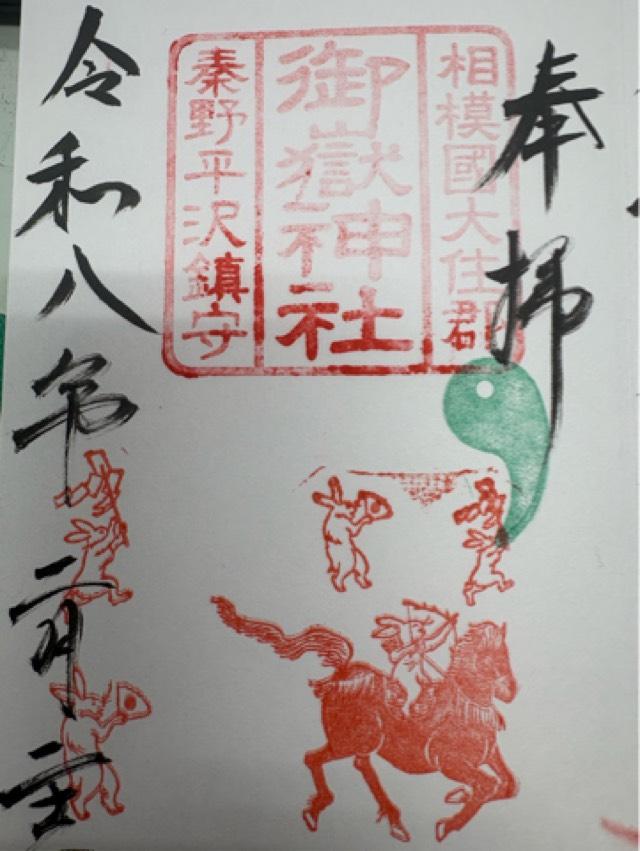 奉拝
相模國大住郡
御嶽神社
秦野平沢鎮守
令和八年二月